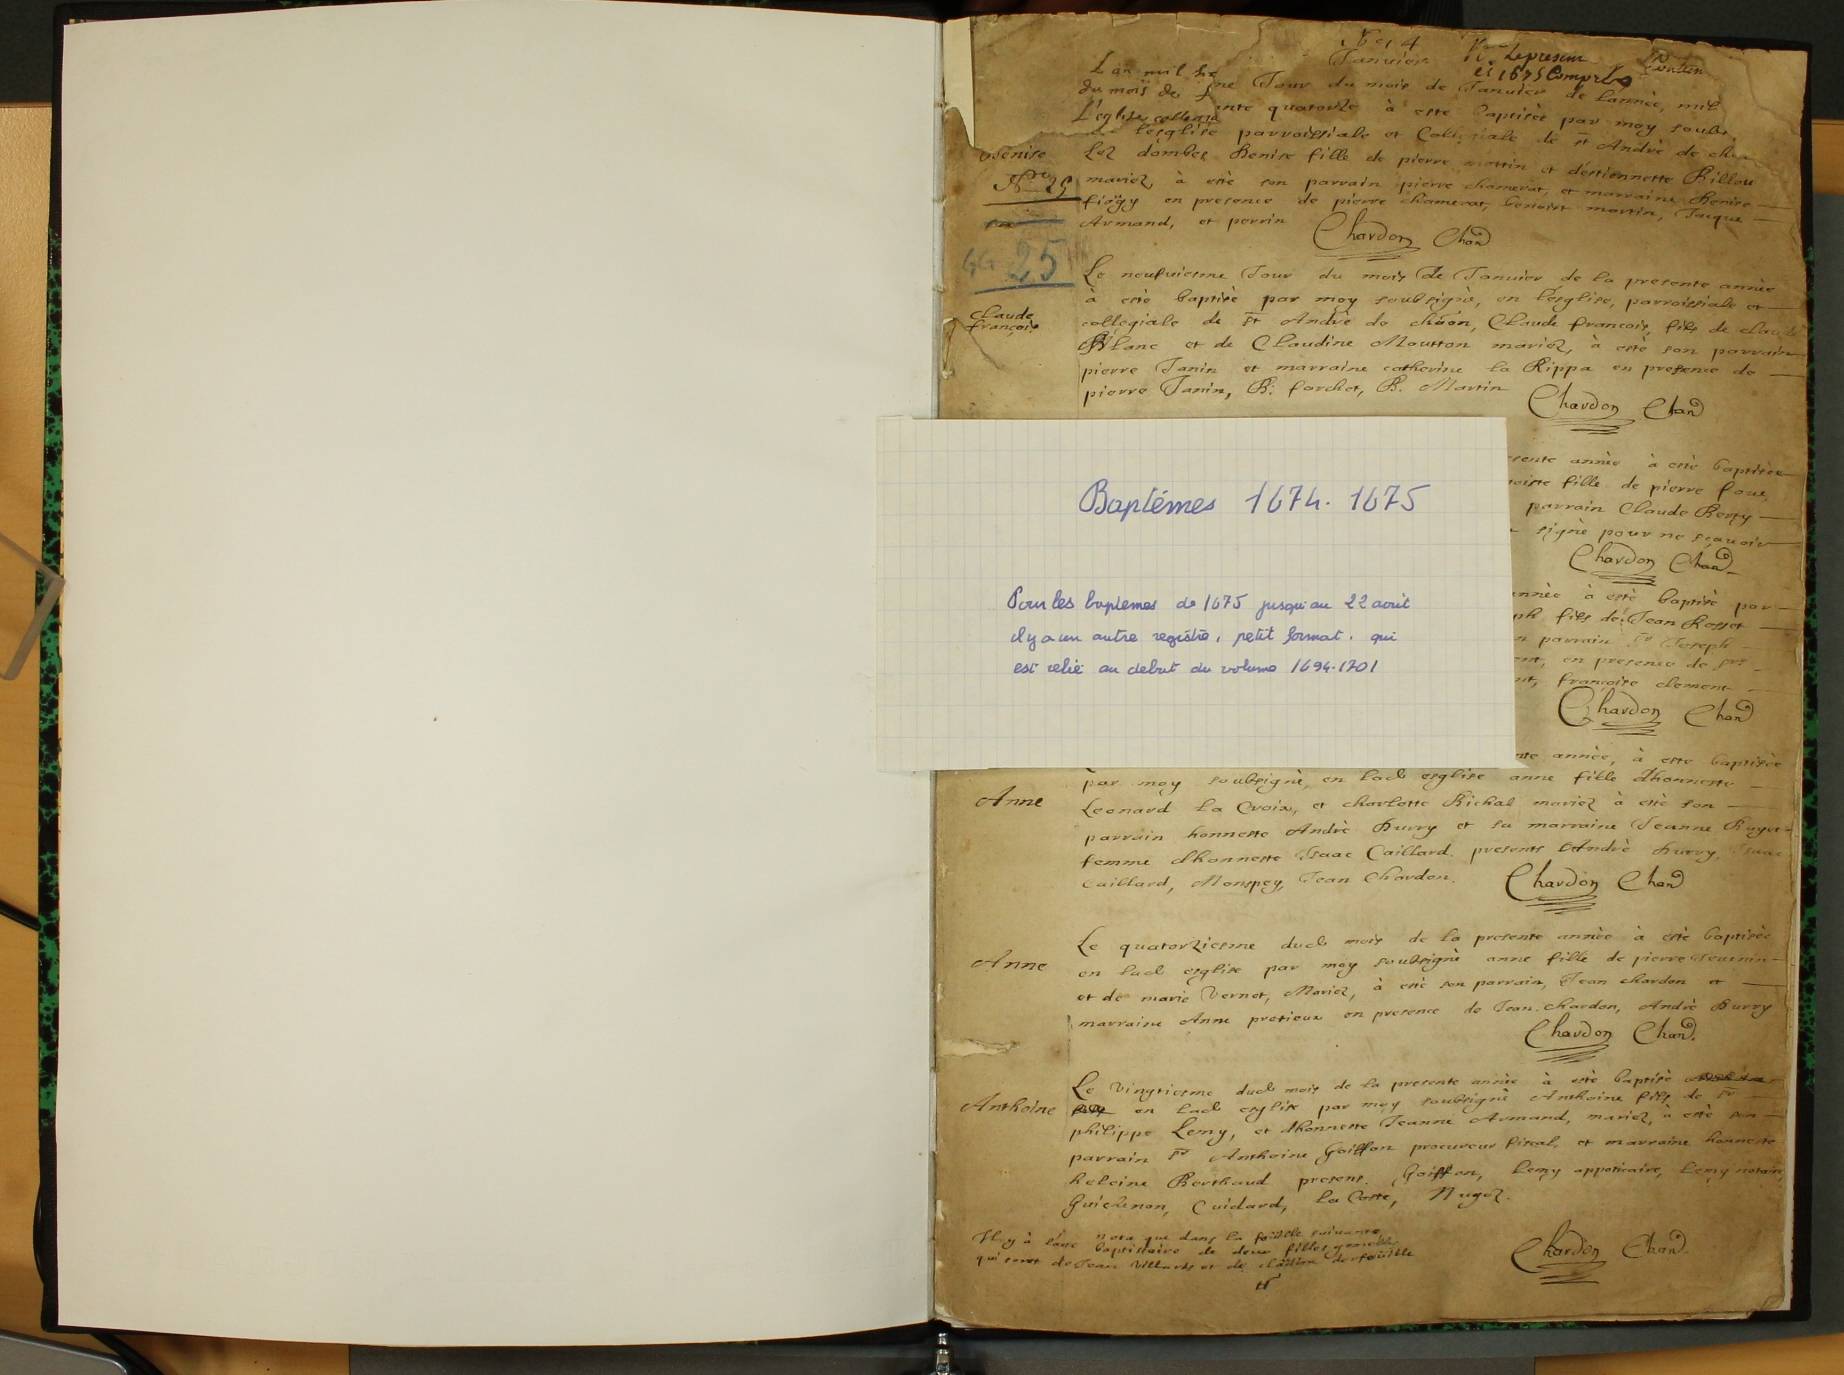 1674
Janvier
Le present
et 1675 Compris
L'an mil six
du mois de
L'eglise collegial
Jour du mois de Janvier de lannèe, mil
quatorze à este baptisèe par moy soubs
lesglise parroissiale et Collegiale de st Andrè de cha
Benise
Lez dombes Benise fille de pierre mottin et destiennette Billou
No 25
mariez, à estè son parrain pierre chamerat, et marraine Benise
fiogy en presence de pierre chamerat, benoist martin, Jacque
Armand, et perrin
Chardon Chan
GG 25
Le neufviesme Jour du mois de Janvier de la presente annèe
à estè baptisè par moy soubsignè, en lesglise, parroissiale et
Claude
françois
collegiale de st Andrè de chãon, Claude francois, fils de claude
Blanc et de Claudine Moutton mariez, à estè son parrain
pierre Janin et marraine catherine la Rippa en presence de
pierre Janin, B. forchet, B. Martin
Chardon Chan
Baptémes 1674. 1675
Pour les baptemes de 1675 jusqu'au 22 avril
il y a un autre registre, petit format, qui
est relié au debut du volume 1694.1701
sente annèe à estè baptisèe
fille de pierre foue
parrain Claude Berty
signè pour ne sçavoir
Chardon Chan
annèe à estè baptisè par
ph fils de Jean Rosset
n parrain sr Joseph
ent, en presence de srs
françoise clement
Chardon Chan
nte annèe, à este baptisèe
par moy soubsignè, en lad esglise anne fille dhonneste
Anne
Leonard la Croix, et charlotte Bichal mariez à estè son
parrain honneste Andrè Burry et sa marraine Jeanne
femme dhonneste Isaac Caillard presents Andrè burry, Isaac
Caillard, Monspey, Jean Chardon.
Chardon Chan
Le quatorziesme dud mois de la presente annèe à estè baptisèe
Anne
en lad esglise par moy soubsignè anne fille de pierre Jeunin
et de marie Vernet, Mariez, à estè son parrain, Jean chardon et
marraine Anne pretieux en presence de Jean chardon, Andrè Burry
Chardon Chan
Le vingtiesme dud mois de la presente annèe à estè baptisè
Anthoine
en lad esglise par moy soubsignè Anthoine fils de sr
philippe Lemy, et dhonneste Jeanne Armand, mariez, à estè son
parrain sr Anthoine Goiffon procureur fiscal, et marraine honneste
heleine Berthaud present. Goiffon, Lemy appoticaire, Lemy notaire,
Guichenon, Cuidard, la Coste, Nugoz.
Il y à sauc nota que dans la foüille suivante
baptistaire de deux filles gemelles
qui sont de Jean Villards et de claudine derfeüille
Chardon Chan